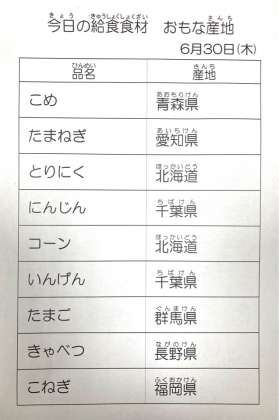 今日の給食食材　おもな産地
6月30日(木)
品名　産地
こめ　青森県
たまねぎ　愛知県
とりにく　北海道
にんじん　千葉県
コーン　北海道
いんげん　千葉県
たまご　群馬県
きゃべつ　長野県
こねぎ　福岡県